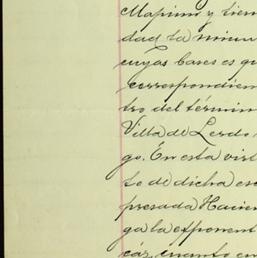 Mapimi y tien
dad la minu
cuyas bases es qu
correspondien
tro del términ
Villa de Lerdo
go. En esta virt
to de dicha es
presada Hacien
ga la exponent
cáz, cuanto en